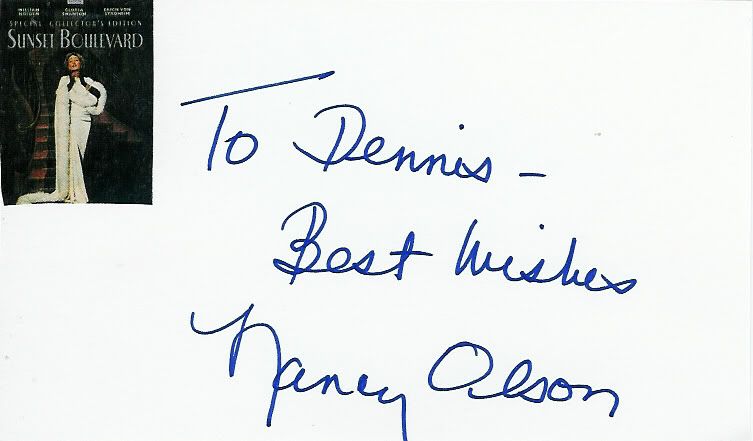 WILLIAM HOLDEN GLORIA SWANSON ERICH VON STROHEIM
SPECIAL COLLECTOR'S EDITION
SUNSET BOULEVARD
To Dennis –
Best Wishes
Nancy Olson